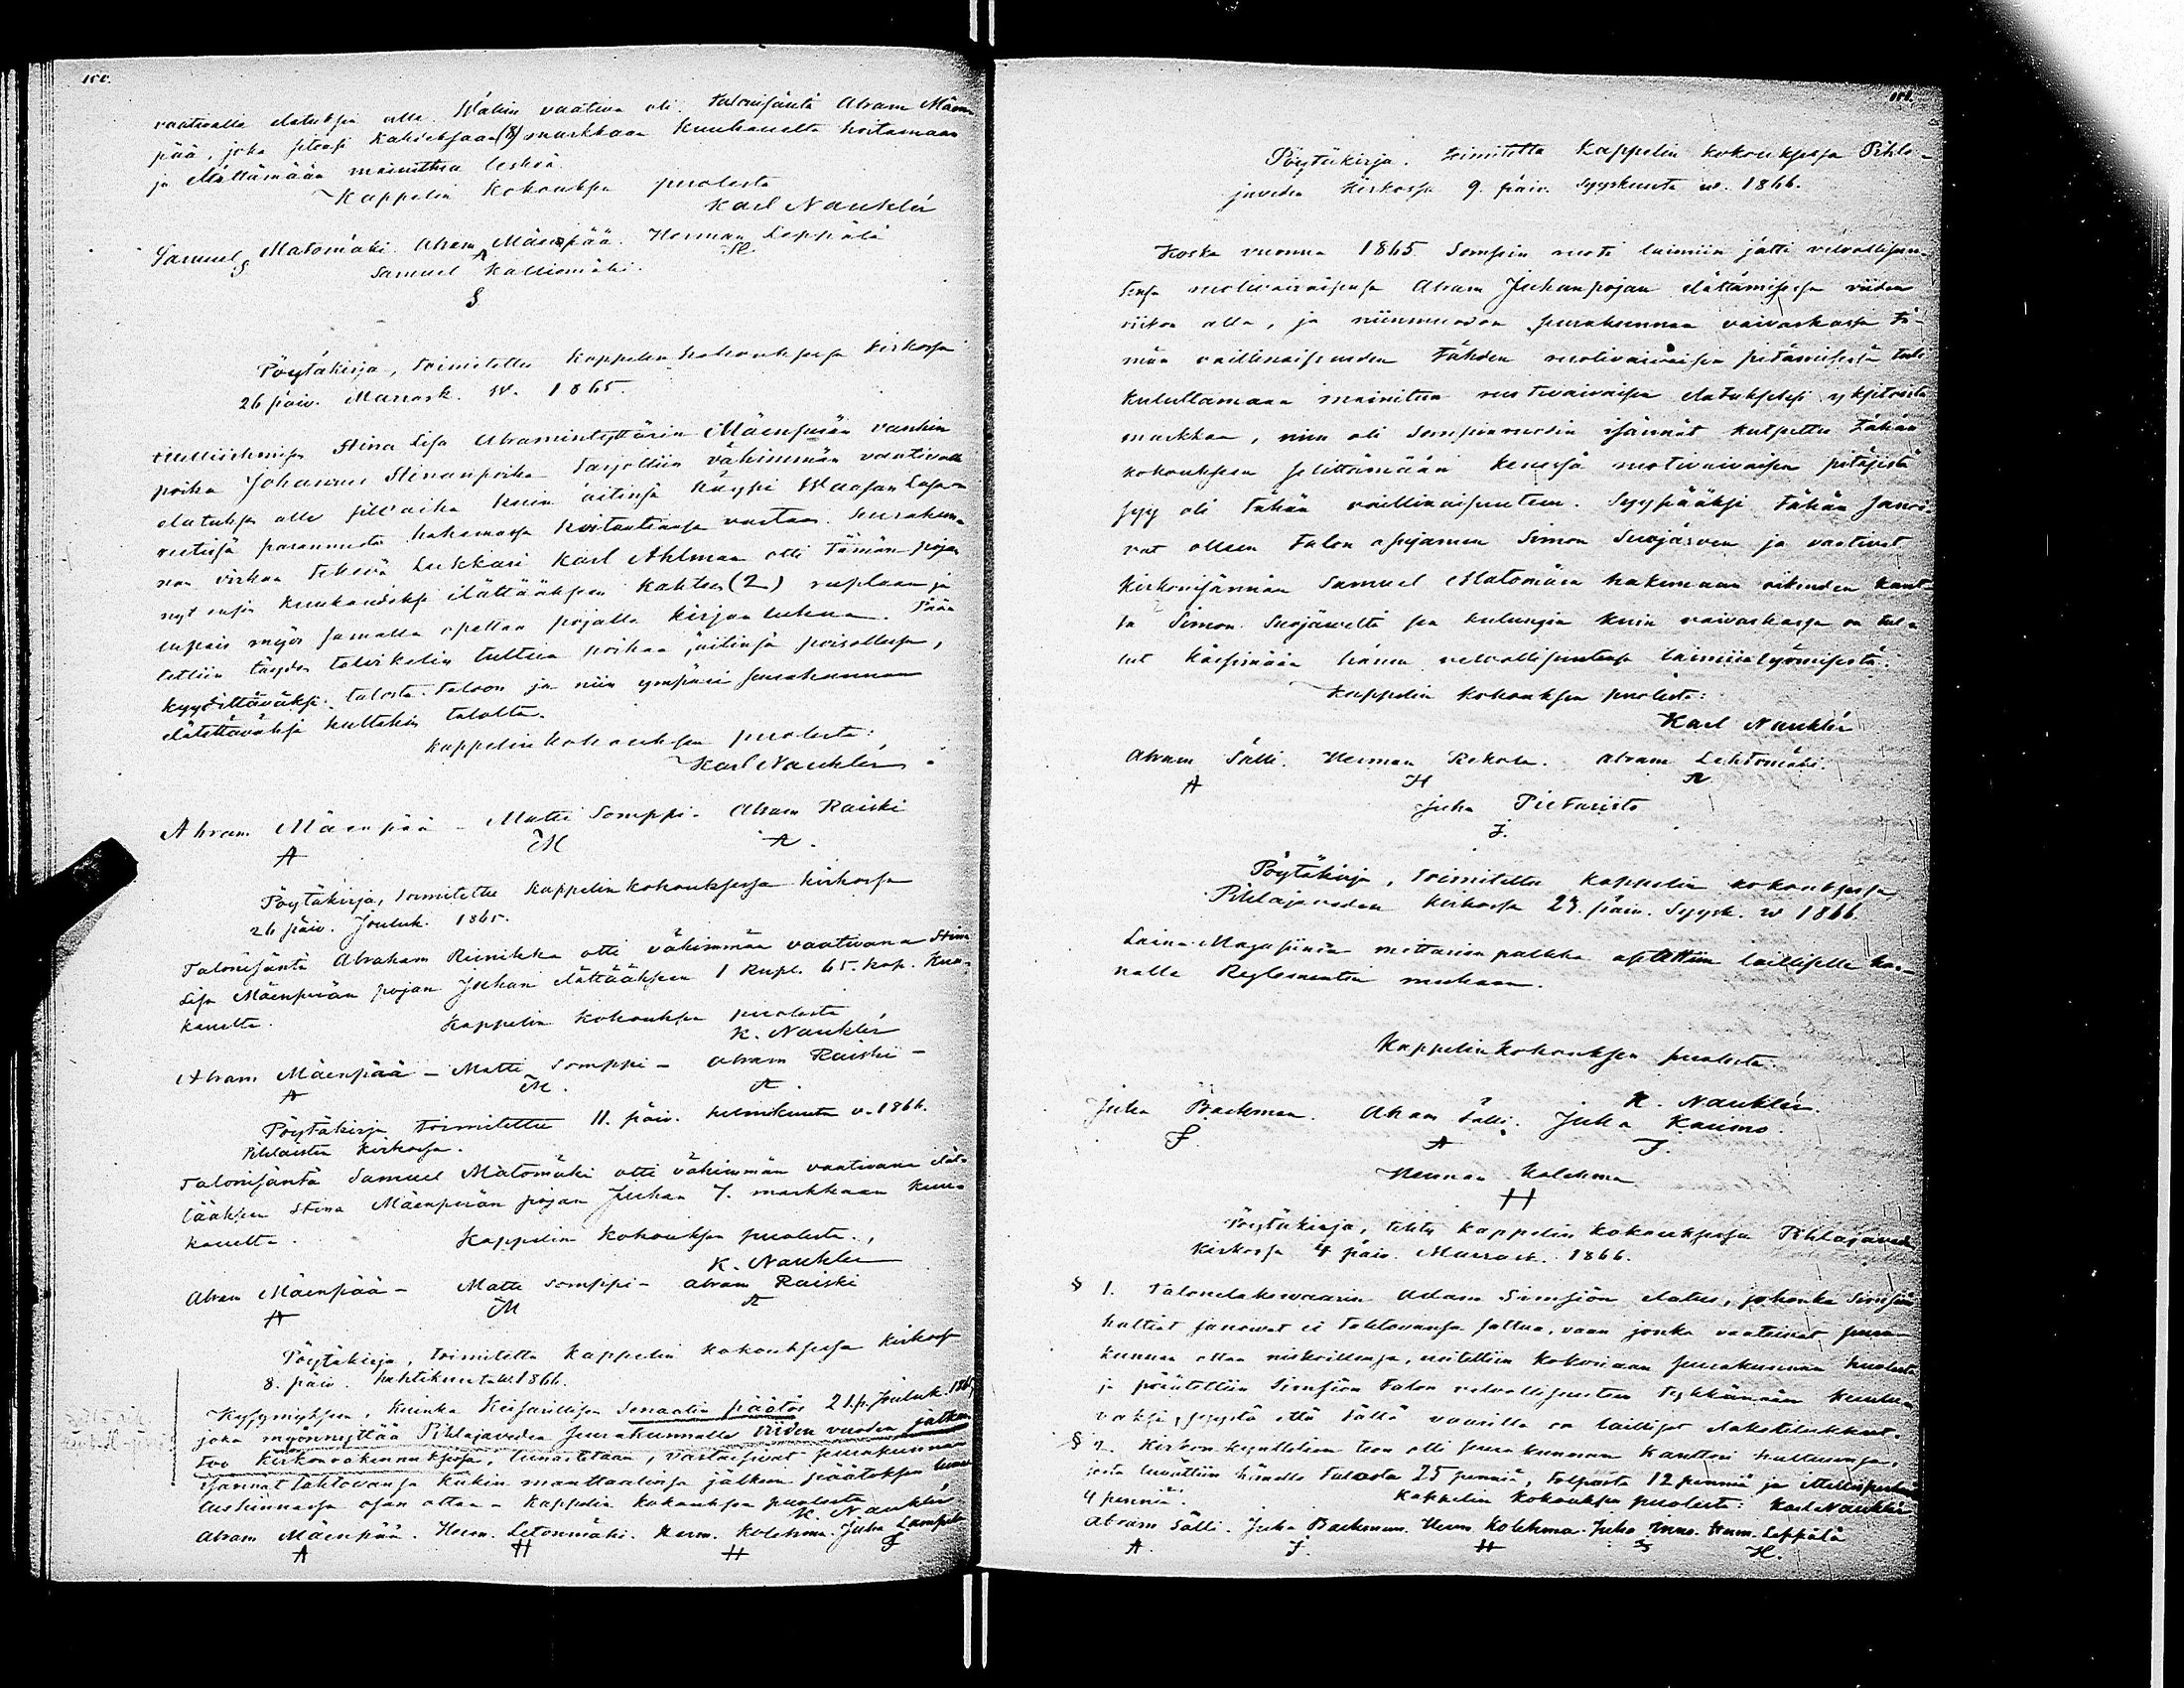 100.
vaativalle elatuksen alle. Wähin vaativa oli talonisäntä Abram Mäen-
pää, joka sitousi kahdeksaan (8) markkaan kuukaudelta hoitamaan
ja elättämään mainittua leskeä.
Kappelin Kokouksen puolesta
Karl Nauklér
Samuel Matomäki. Abram Mäenpää. Herman Leppälä
S A H.
Samuel Kalliomäki.
S
Pöytäkirja, toimitettu Kappelin kokouksessa kirkossa
26 päiv. Marrask. w. 1865.
Stina Lisa Abramintyttärin Mäenperän vanhin
poika Johannes Stinanpoika tarjottiin vähimmän vaativalle
elatuksen alle siksi aika kuin äitinsä käypi Waasan Lasa-
retissä parannusta hakemassa hoitantoansa vastaan. Seurakun-
nan virkaa tekevä Lukkari Karl Ahlman otti tämän pojan
nyt ensin kuukaudeksi elättääksen kahteen (2) ruplaan ja
lupais myös samalla opettaa pojalle kirjan lukua.
tettiin täyden talvikelin tultua poikaa, äitinsä poisollessa,
kyydittäväksi talosta taloon ja niin ympäri seurakunnan
elätettäväksi kultakin talolta.
Kappelin kokouksen puolesta:
Karl Nauklér.
Abram Mäenpää - Matti Somppi. Abram Raiski
A M A.
Pöytäkirja, toimitettu Kappelin kokouksessa kirkossa
26 päiv. Jouluk. 1865.
Talonisäntä Abraham Reinikka otti vähimmän vaativana Stina
Lisa Mäenperän pojan Juhan elättääksen 1 Rupl. 65. kop. Kuu-
kaudelta.
Kappelin Kokouksen puolesta
K. Nauklér
Abram Mäenpää - Matti Somppi - Abram Raiski -
A M. A.
Pöytäkirja toimitettu 11. päiv. helmikuuta v. 1866.
Pihlaisten Kirkossa.
Talonisäntä Samuel Matomäki otti vähimmän vaativana elät-
tääksen Stina Mäenperän pojan Juhan 7. markkaan kuu-
kaudelta.
Kappelin Kokouksen puolesta.,
K. Nauklér
Abram Mäenpää - Matti Somppi - Abram Raiski
A M A
Pöytäkirja, toimitettu Kappelin kokouksessa kirkossa
8. päiv. huhtikuuta w. 1866.
Kysymyksen, kuinka Keisarillisen Senaatin päätös 21. p. Jouluk. 1865
joka myönnyttää Pihlajaveden Seurakunnalle viiden vuoden jatkon
kirkonrakennuksessa, lunastetaan, vastaisivat seurakunnan
isännät tahtovansa kukin manttaalinsa jälkeen päätöksen lunas-
tushinnassa osan ottaa - Kappelin kokouksen puolesta
K. Nauklér
Abram Mäenpää. Herm. Letonmäki. Herm. Kolehma. Juha Lampi
A H H J
101.
Pöytäkirja. toimitettu Kappelin kokouksessa Pihla-
javeden Kirkossa 9. päiv. Syyskuuta w. 1866.
Koska vuonna 1865 Sompin ruoti laimiin jätti velvollisuu-
tensa ruotivaivaisensa Abram Juhanpojan elättämisessä viiden
viikon alla, ja niinmuodon seurakunnan vaivaskassa tä-
män vaillinaisuuden tähden ruotivaivaisen pitämisessä tuli
kuluttamaan mainitun ruotivaivaisen elatukseksi yksitoista
markkaa, niin oli Sompinruodin isännät kutsuttu tähän
kokouksen selittämään kenessä ruotivaivaisen pitäjistä
syy oli tähän vaillinaisuuteen. Syypääksi tähän sanoi-
vat olleen talon asujamen Simon Suojärven ja vaativat
Kirkonisännän Samuel Matomäen hakemaan oikeuden kaut-
ta Simon Suojärveltä sen kulungin kuin vaivaskassa on tul-
lut kärsimään hänen velvollisuutensa laimiinlyömisestä.
Kappelin Kokouksen puolesta:
Karl Nauklér
Abram Sälli. Herman Rekola. Abram Lehtomäki.
A H A
Juha Pietaristo
J.
Pöytäkirja, toimitettu Kappelin kokouksessa
Pihlajaveden kirkossa 23. päiv. Syysk. w 1866.
Laina-Magasiinin mittarien palkka asetettiin lailliselle kan-
nalle Reglementin mukaan.
Kappelin kokouksen puolesta.
K. Nauklér.
Juha Backman. Abram Sälli. Juha Kaimo.
J. A J.
Herman Kolehma
H
Pöytäkirja, tehty Kappelin kokouksessa Pihlajaveden
kirkossa 4 päiv. Marrask. 1866.
§ 1. Talonelakevaarin Adam Simsiön elatus, johonka Simsiön
haltiat sanowat ei tahtovansa suttua, vaan jonka vaativat seura-
kunnan ottaa niskoillensa, uteltiin kokonaan seurakunnan huolesta
ja päätettiin Simsiön talon velvollisuuteen tykkänään kuulu-
vaksi, syystä että tällä vaarilla on lailliset elakekirjat.
§ 2. Kirkon kynttiläin teon otti seurakunnan kanttori haltuunsa,
josta luvattiin hänelle talosta 25 penniä, torpasta 12 penniä ja itellisperheestä
4 penniä. Kappelin Kokouksen puolesta: Karl Nauklér
Abram Sälli. Juha Backman. Herm Kolehma. Juha Inno. Herm. Leppälä
A. J. H J H.